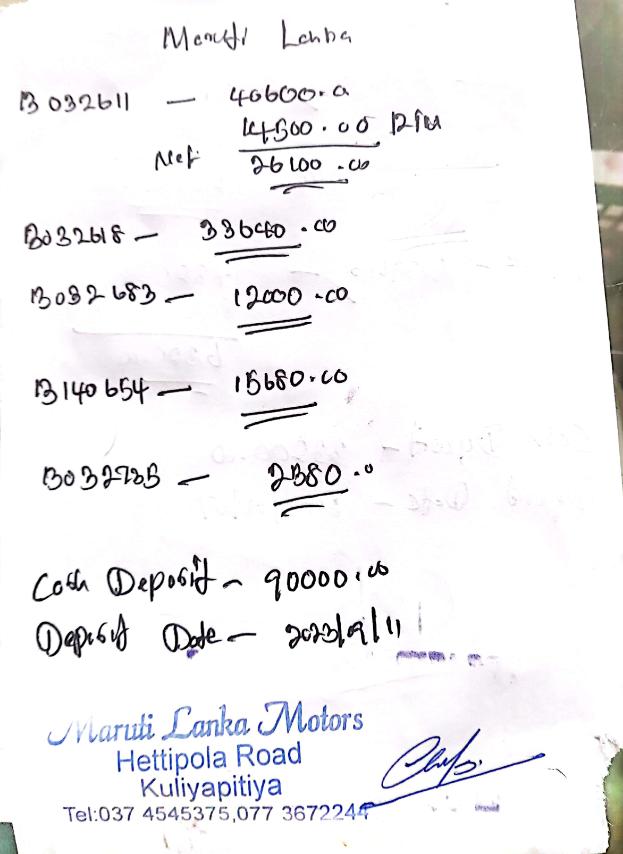 Maruti Lanka
B 032611 — 40600.00
14500.00 RTN
Net 26100.00
B032618 — 33640.00
B032683 — 12000.00
B140654 — 15680.00
B032735 — 2580.0
Cash Deposit - 90000.00
Deposit Date — 2023/9/11
Maruti Lanka Motors
Hettipola Road
Kuliyapitiya
Tel:037 4545375,077 3672244